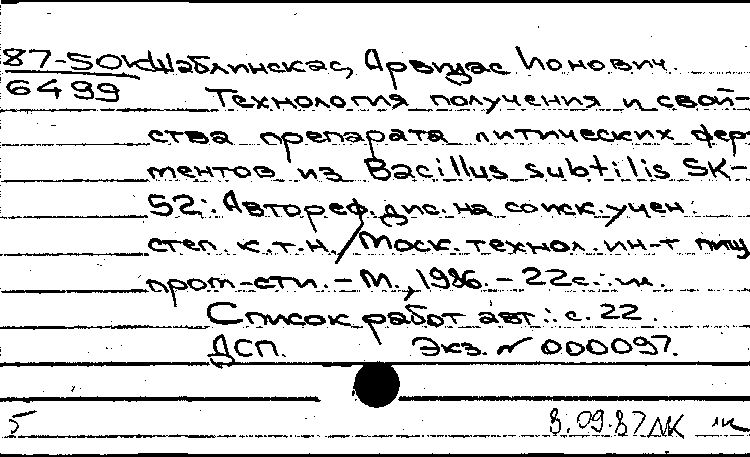 87-50к Шаблинскас, Арвидас Ионович.
6499 Технология получения и свой-
ства препарата литических фер-
ментов из Bacillus subtilis SK-
52: Автореф. дис. на соиск. учен.
степ. к.т.н. / Моск. технол. ин-т пищ.
пром-сти. - М., 1986. - 22с.: ил.
Список работ авт.: с. 22.
ДСП. Экз. № 000097.
5 8.09.87 ЛК